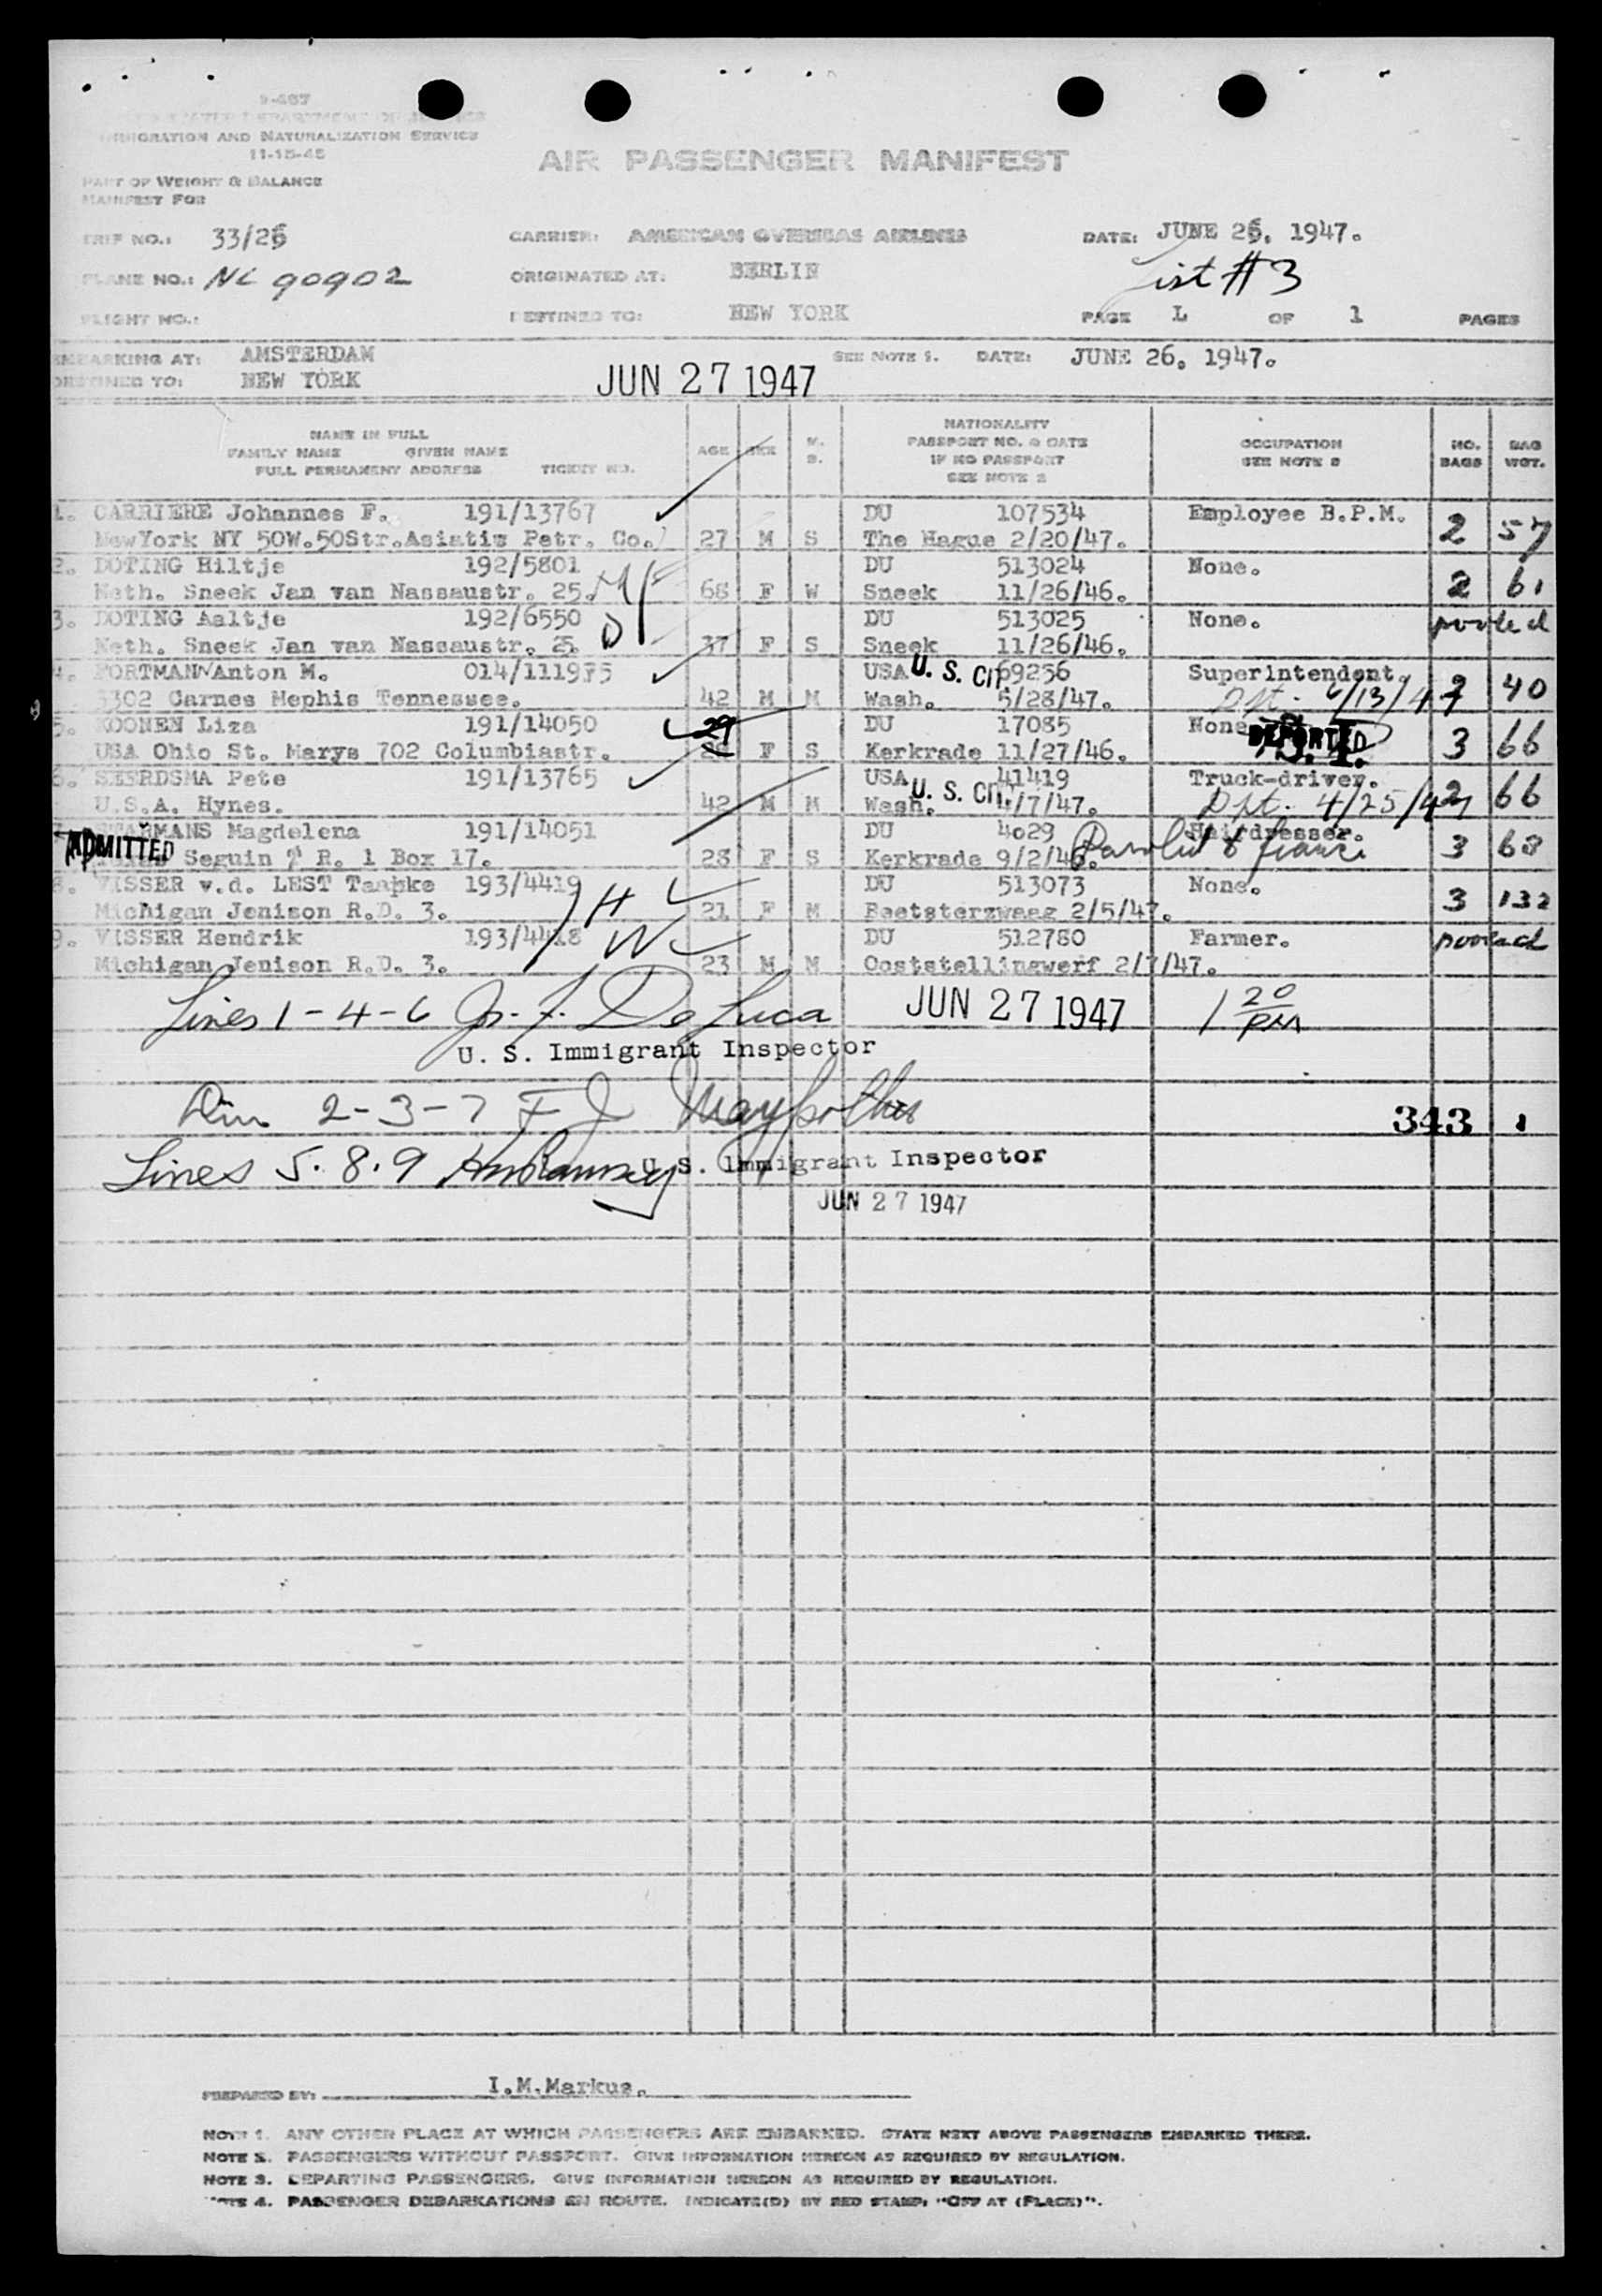 9-467
IMMIGRATION AND NATURALIZATION SERVICE
11-15-45
PART OF WEIGHT & BALANCE
MANIFEST FOR
AIR PASSENGER MANIFEST
TRIP NO.: 33/26 CARRIER: AMERICAN OVERSEAS AIRLINES DATE: JUNE 26. 1947.
PLANE NO.: NC 90902 ORIGINATED AT: BERLIN List #3
FLIGHT NO.: DESTINED TO: NEW YORK PAGE 1 OF 1 PAGES
EMBARKING AT: AMSTERDAM SEE NOTE 1. DATE: JUNE 26. 1947.
DESTINED TO: NEW YORK JUN 27 1947
NAME IN FULL
FAMILY NAME GIVEN NAME
FULL PERMANENT ADDRESS TICKET NO.
AGE SEX M. S.
NATIONALITY
PASSPORT NO. & DATE
IF NO PASSPORT
SEE NOTE 2
OCCUPATION
SEE NOTE 3
NO. BAGS
BAG WGT.
1. CARRIERE Johannes F. 191/13767 DU 107534 Employee B.P.M.
NewYork NY 50W.50Str.Asiatic Petr. Co. 27 M S The Hague 2/20/47. 2 57
2. DOTING Hiltje 192/5801 DU 513024 None.
Neth. Sneek Jan van Nassaustr. 25. M 68 F W Sneek 11/26/46. 2 61
3. DOTING Aaltje 192/6550 D DU 513025 None. pooled
Neth. Sneek Jan van Nassaustr. 25 37 F S Sneek 11/26/46.
4. PORTMAN Anton M. 014/111975 USA U. S. CIT 69256 Superintendent.
3302 Carnes Mephis Tennessee. 42 M M Wash. 5/28/47. Dpt. 6/13/47 2 40
5. KOONEN Liza 191/14050 29 DU 17085 None DEPORTED S. I.
USA Ohio St. Marys 702 Columbiastr. 28 F S Kerkrade 11/27/46. 3 66
6. SEERDSMA Pete 191/13765 USA U. S. CIT 41419 Truck-driver.
U.S.A. Hynes. 42 M M Wash. 4/7/47. Dpt. 4/25/47 2 66
7. MANS Magdelena 191/14051 DU 4029 Hairdresser.
ADMITTED Seguin R. 1 Box 17. 28 F S Kerkrade 9/2/46. Paroled to fiance 3 68
8. VISSER v.d. LEST Taapke 193/4419 H DU 513073 None.
Michigan Jenison R.D. 3. 21 F M Beetsterzwaag 2/5/47. 3 132
9. VISSER Hendrik 193/4418 W DU 512780 Farmer. pooled
Michigan Jenison R.D. 3. 23 M M Ooststellingwerf 2/7/47.
Lines 1-4-6 De Luca JUN 27 1947 1 20 PM
U. S. Immigrant Inspector
2-3-7 F J 343
Lines 5.8.9 Ramsey U. S. Immigrant Inspector
JUN 27 1947
PREPARED BY: I.M.Markus.
NOTE 1. ANY OTHER PLACE AT WHICH PASSENGERS ARE EMBARKED. STATE NEXT ABOVE PASSENGERS EMBARKED THERE.
NOTE 2. PASSENGERS WITHOUT PASSPORT. GIVE INFORMATION HEREON AS REQUIRED BY REGULATION.
NOTE 3. DEPARTING PASSENGERS. GIVE INFORMATION HEREON AS REQUIRED BY REGULATION.
NOTE 4. PASSENGER DEBARKATIONS EN ROUTE. INDICATE(D) BY RED STAMP: "OFF AT (PLACE)".